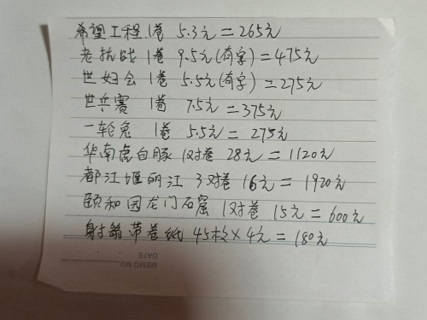 希望工程 1卷 5.3元=265元
老抗战 1卷 9.5元(荷字)=475元
世妇会 1卷 5.5元(荷字)=275元
世乒赛 1卷 7.5元=375元
一轮兔 1卷 5.5元=275元
华南虎白豚 1对卷 28元=1120元
都江堰丽江 3对卷 16元=1920元
颐和园龙门石窟 1对卷 15元=600元
射箭带卷纸 45枚×4元=180元
MEMO NO.
DATE